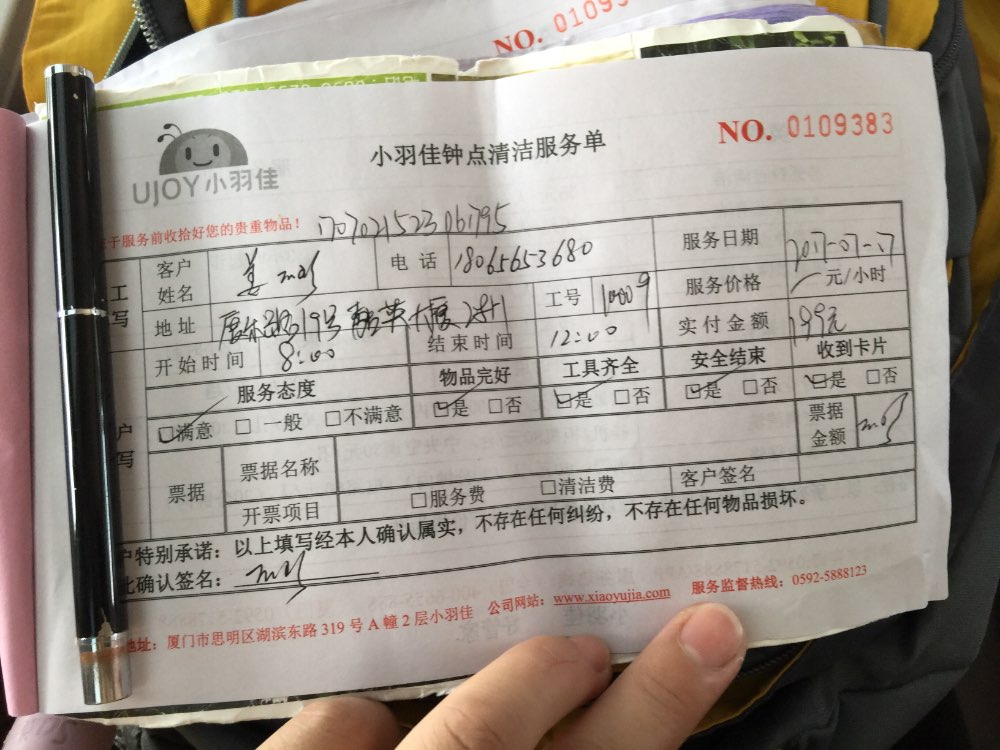 NO. 01093
NO. 0109383
小羽佳钟点清洁服务单
UJOY小羽佳
于服务前收拾好您的贵重物品！ 170721523061795
客户姓名 姜 电话 18065653680 服务日期 2017-07-17
地址 19号 大厦 工号 10009 服务价格 元/小时
开始时间 8:00 结束时间 12:00 实付金额 199元
服务态度 物品完好 工具齐全 安全结束 收到卡片
☑满意 □ 一般 □不满意 ☑是 □否 ☑是 □否 ☑是 □否 ☑是 □否
票据 票据名称 票据金额
开票项目 □服务费 □清洁费 客户签名
户特别承诺：以上填写经本人确认属实，不存在任何纠纷，不存在任何物品损坏。
此确认签名：
地址：厦门市思明区湖滨东路 319 号 A 幢 2 层小羽佳 公司网站：www.xiaoyujia.com 服务监督热线：0592-5888123